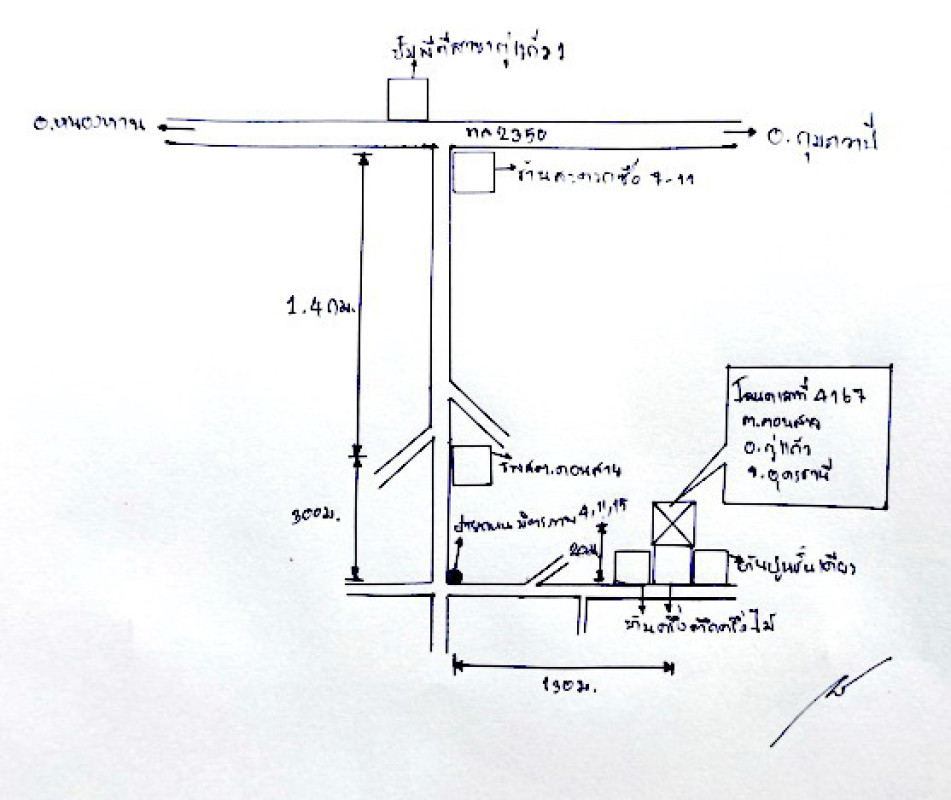 ปั๊มพีทีสาขากู่แก้ว 1
อ.หนองหาน
ทล 2350
อ.กุมภวาปี
ร้านสะดวกซื้อ 7-11
1.4 กม.
โฉนดเลขที่ 4167
ต.คอนสาย
อ.กู่แก้ว
จ.อุดรธานี
รพสต.คอนสาย
300ม.
ป้ายถนน มิตรภาพ 4,11,15
20ม.
บ้านปูนชั้นเดียว
บ้านครึ่งตึกครึ่งไม้
130ม.